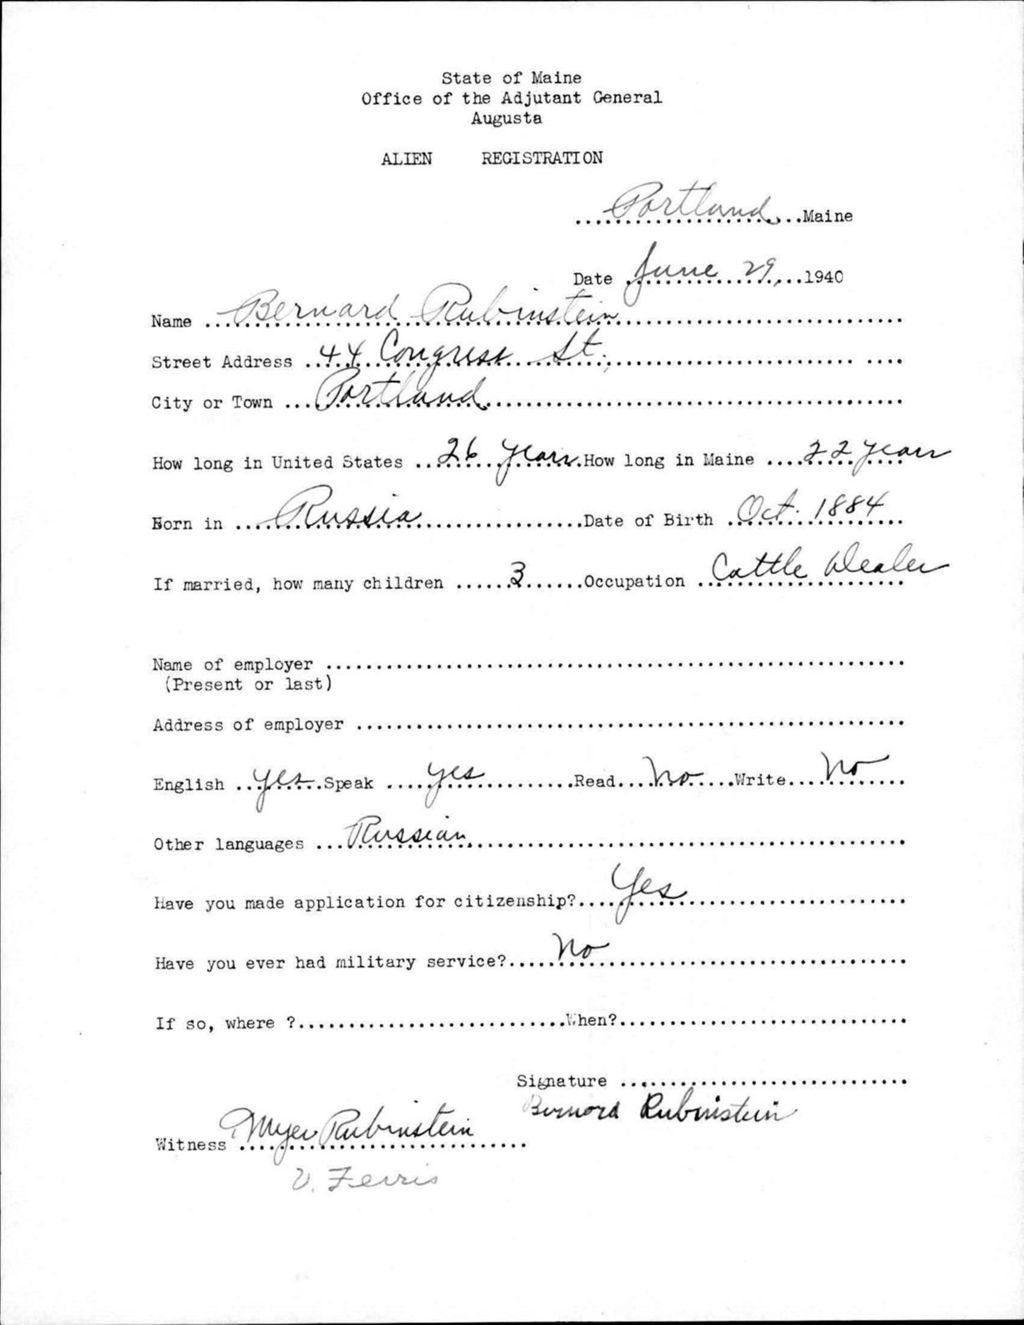 State of Maine
Office of the Adjutant General
Augusta
ALIEN REGISTRATION
Portland Maine
Date June 29, 1940
Name Bernard Rubinstein
Street Address 44 Congress St.
City or Town Portland
How long in United States 26 years How long in Maine 22 years
Born in Russia Date of Birth Oct. 1884
If married, how many children 3 Occupation Cattle Dealer
Name of employer
(Present or last)
Address of employer
English yes Speak yes Read No Write No
Other languages Russian
Have you made application for citizenship? Yes
Have you ever had military service? No
If so, where ? When?
Signature
Bernard Rubinstein
Witness Myer Rubinstein
V. Ferris